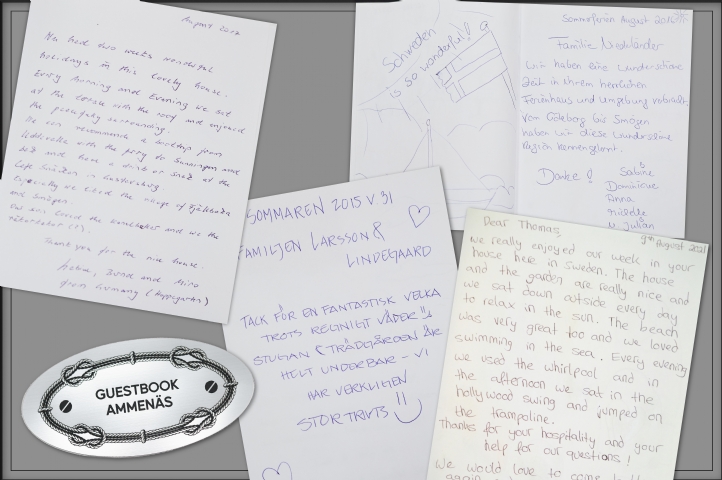 August 2017
We had two weeks wonderful
holidays in this lovely house.
Every morning and Evening we sat
at the terrace with the roof and enjoyed
the peacefully surrounding.
We can recommend a
with the ferry to
and have a drink or snack at the
Café
Especially we liked the village of Fjällbacka
and Smögen
Thank you for the nice house.
and Miro
from Germany
Schweden
is so wonderful!
Sommerferien August
Familie Niederländer
Wir haben eine wunderschöne
Zeit in Ihrem herrlichen
Ferienhaus und Umgebung verbracht.
Von Göteborg bis Smögen
haben wir diese wunderschöne
Region kennengelernt.
Danke!
Sabine
Dominique
Anna
Julian
SOMMAREN 2015 V. 31
FAMILJEN LARSSON &
LINDEGAARD
TACK FÖR EN FANTASTISK VECKA
TROTS REGNIGT VÄDER!!
STUGAN & TRÄDGÅRDEN ÄR
HELT UNDERBAR - VI
HAR VERKLIGEN
STORTRIVTS!!
Dear Thomas,
9th August 2021
we really enjoyed our week in your
house here in Sweden. The house
and the garden are really nice and
we sat down outside every day
to relax in the sun. The beach
was very great too and we loved
swimming in the sea. Every evening
we used the whirlpool and in
the afternoon we sat in the
hollywood swing and jumped on
the trampoline.
Thanks for your hospitality and your
help for our questions!
We would love to come
again
GUESTBOOK
AMMENÄS